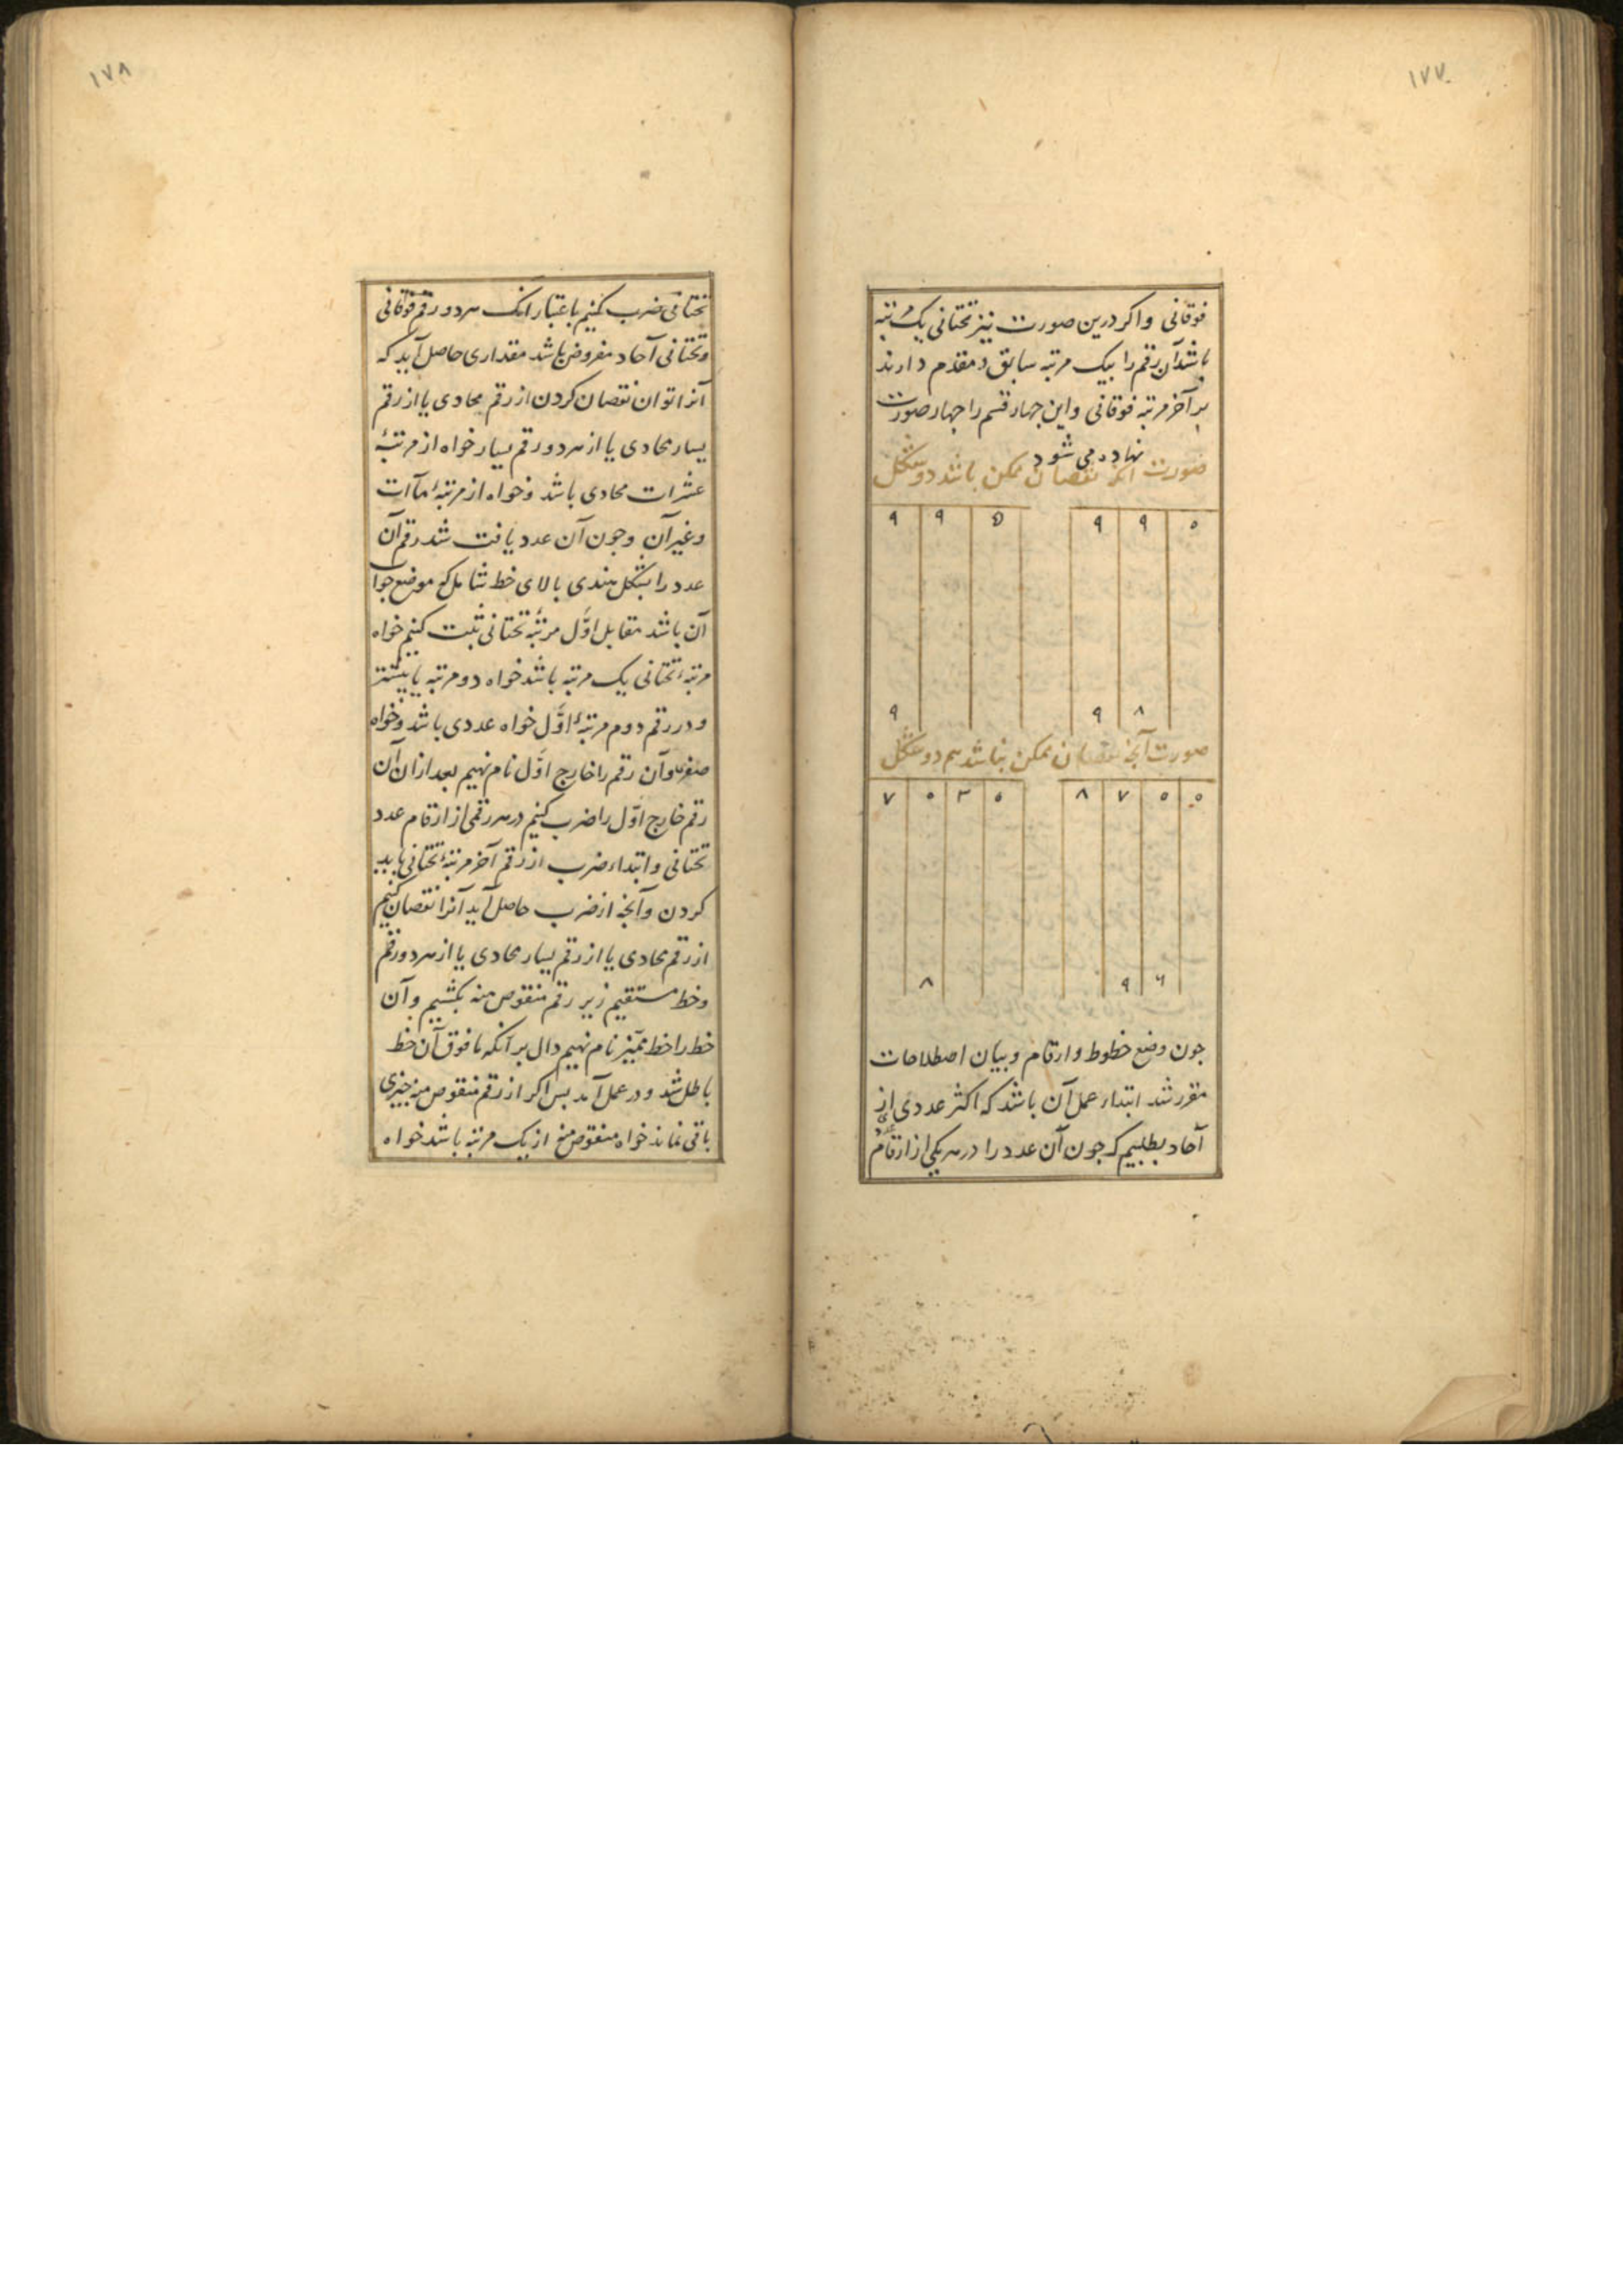 ۱۷۷
فوقانی واکر درین صورت نیز تحتانی یک مرتبه
باشد آن رقم را بیک مرتبه سابق و مقدم دارند
بر آخر مرتبه فوقانی واین جهار قسم را جهار صورت
نهاده می شود
صورت آنکه نقصان ممکن باشد دو شکل
۹ ۹ ۵ ۹ ۹ ۰
۹ ۹ ۸
صورت آنجه نقصان ممکن نباشد هم دو شکل
۷ ۰ ۳ ۰ ۸ ۷ ۵ ۰
۸ ۹ ۶
جون وضع خطوط و ارقام و بیان اصطلاحات
مقرر شد ابتداء عمل آن باشد که اکثر عددی از
آحاد بطلبیم که جون آن عدد را در هر یکی از ارقام عدد
۱۷۸
تحتانی ضرب کنیم باعتبار انک هر دو رقم فوقانی
وتحتانی آحاد مفروض باشد مقداری حاصل آید که
آنرا توان نقصان کردن از رقم محاذی یا از رقم
یسار محاذی یا از هر دو رقم یسار خواه از مرتبهٔ
عشرات محاذی باشد و خواه از مرتبهٔ مآات
وغیر آن وجون آن عدد یافت شد رقم آن
عدد را بشکل هندی بالای خط شامل که موضع جواب
آن باشد مقابل اوّل مرتبهٔ تحتانی ثبت کنیم خواه
مرتبهٔ تحتانی یک مرتبه باشد خواه دو مرتبه یا بیشتر
و در رقم دوم مرتبهٔ اوّل خواه عددی باشد و خواه
صفر و آن رقم را خارج اوّل نام نهیم بعد ازان آن
رقم خارج اوّل را ضرب کنیم در هر رقمی از ارقام عدد
تحتانی و ابتداء ضرب از رقم آخر مرتبهٔ تحتانی باید
کردن وآنجه از ضرب حاصل آید آنرا نقصان کنیم
از رقم محاذی یا از رقم یسار محاذی یا از هر دو رقم
وخط مستقیم زیر رقم منقوص منه بکشیم وآن
خط را خط ممیّز نام نهیم دال بر آنکه ما فوق آن خط
باطل شد و در عمل آمد بس اکر از رقم منقوص منه جیزی
باقی نماند خواه منقوص منه از یک مرتبه باشد خواه